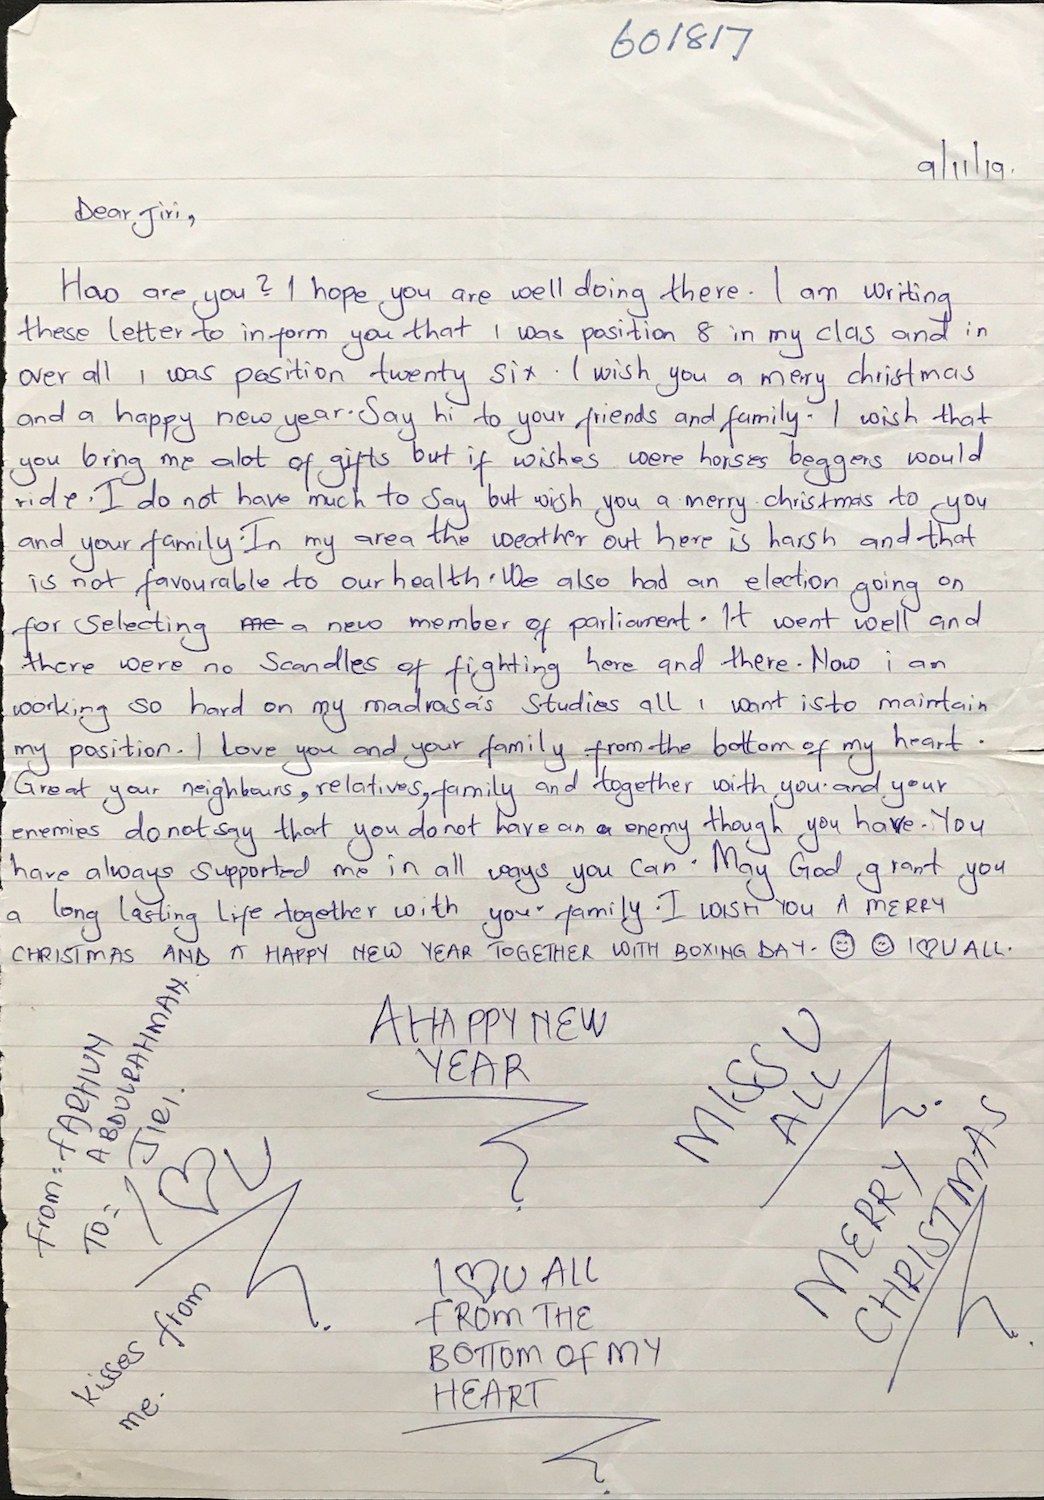 601817
9/11/19.
Dear Jiri,
How are you? I hope you are well doing there. I am writing
these letter to inform you that I was position 8 in my clas and in
over all I was position twenty six. I wish you a merry christmas
and a happy new year. Say hi to your friends and family. I wish that
you bring me alot of gifts but if wishes were horses beggers would
ride. I do not have much to say but wish you a merry christmas to you
and your family. In my area the weather out here is harsh and that
is not favourable to our health. We also had an election going on
for selecting me a new member of parliament. It went well and
there were no Scandles of fighting here and there. Now i an
working so hard on my madrasa's studies all I want is to maintain
my position. I love you and your family from the bottom of my heart.
Great your neighbours, relatives, family and together with you and your
enemies do not say that you do not have an a enemy though you have. You
have always supported me in all ways you can. May God grant you
a long lasting life together with your family. I WISH YOU A MERRY
CHRISTMAS AND A HAPPY NEW YEAR TOGETHER WITH BOXING DAY. ☺ ☺ I♡U ALL.
From: FARHUN
ABDULRAHMAN
To: JIRI.
♡U
kisses from
me.
A HAPPY NEW
YEAR
I ♡U ALL
FROM THE
BOTTOM OF MY
HEART
MISS U
ALL
MERRY
CHRISTMAS